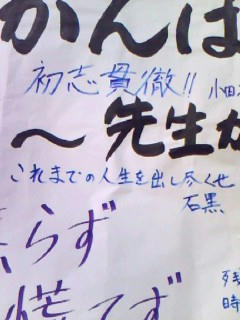 がんば
初志貫徹!! 小田
〜先生か
これまでの人生を出し尽くせ
石黒
らず
慌てず
残
時